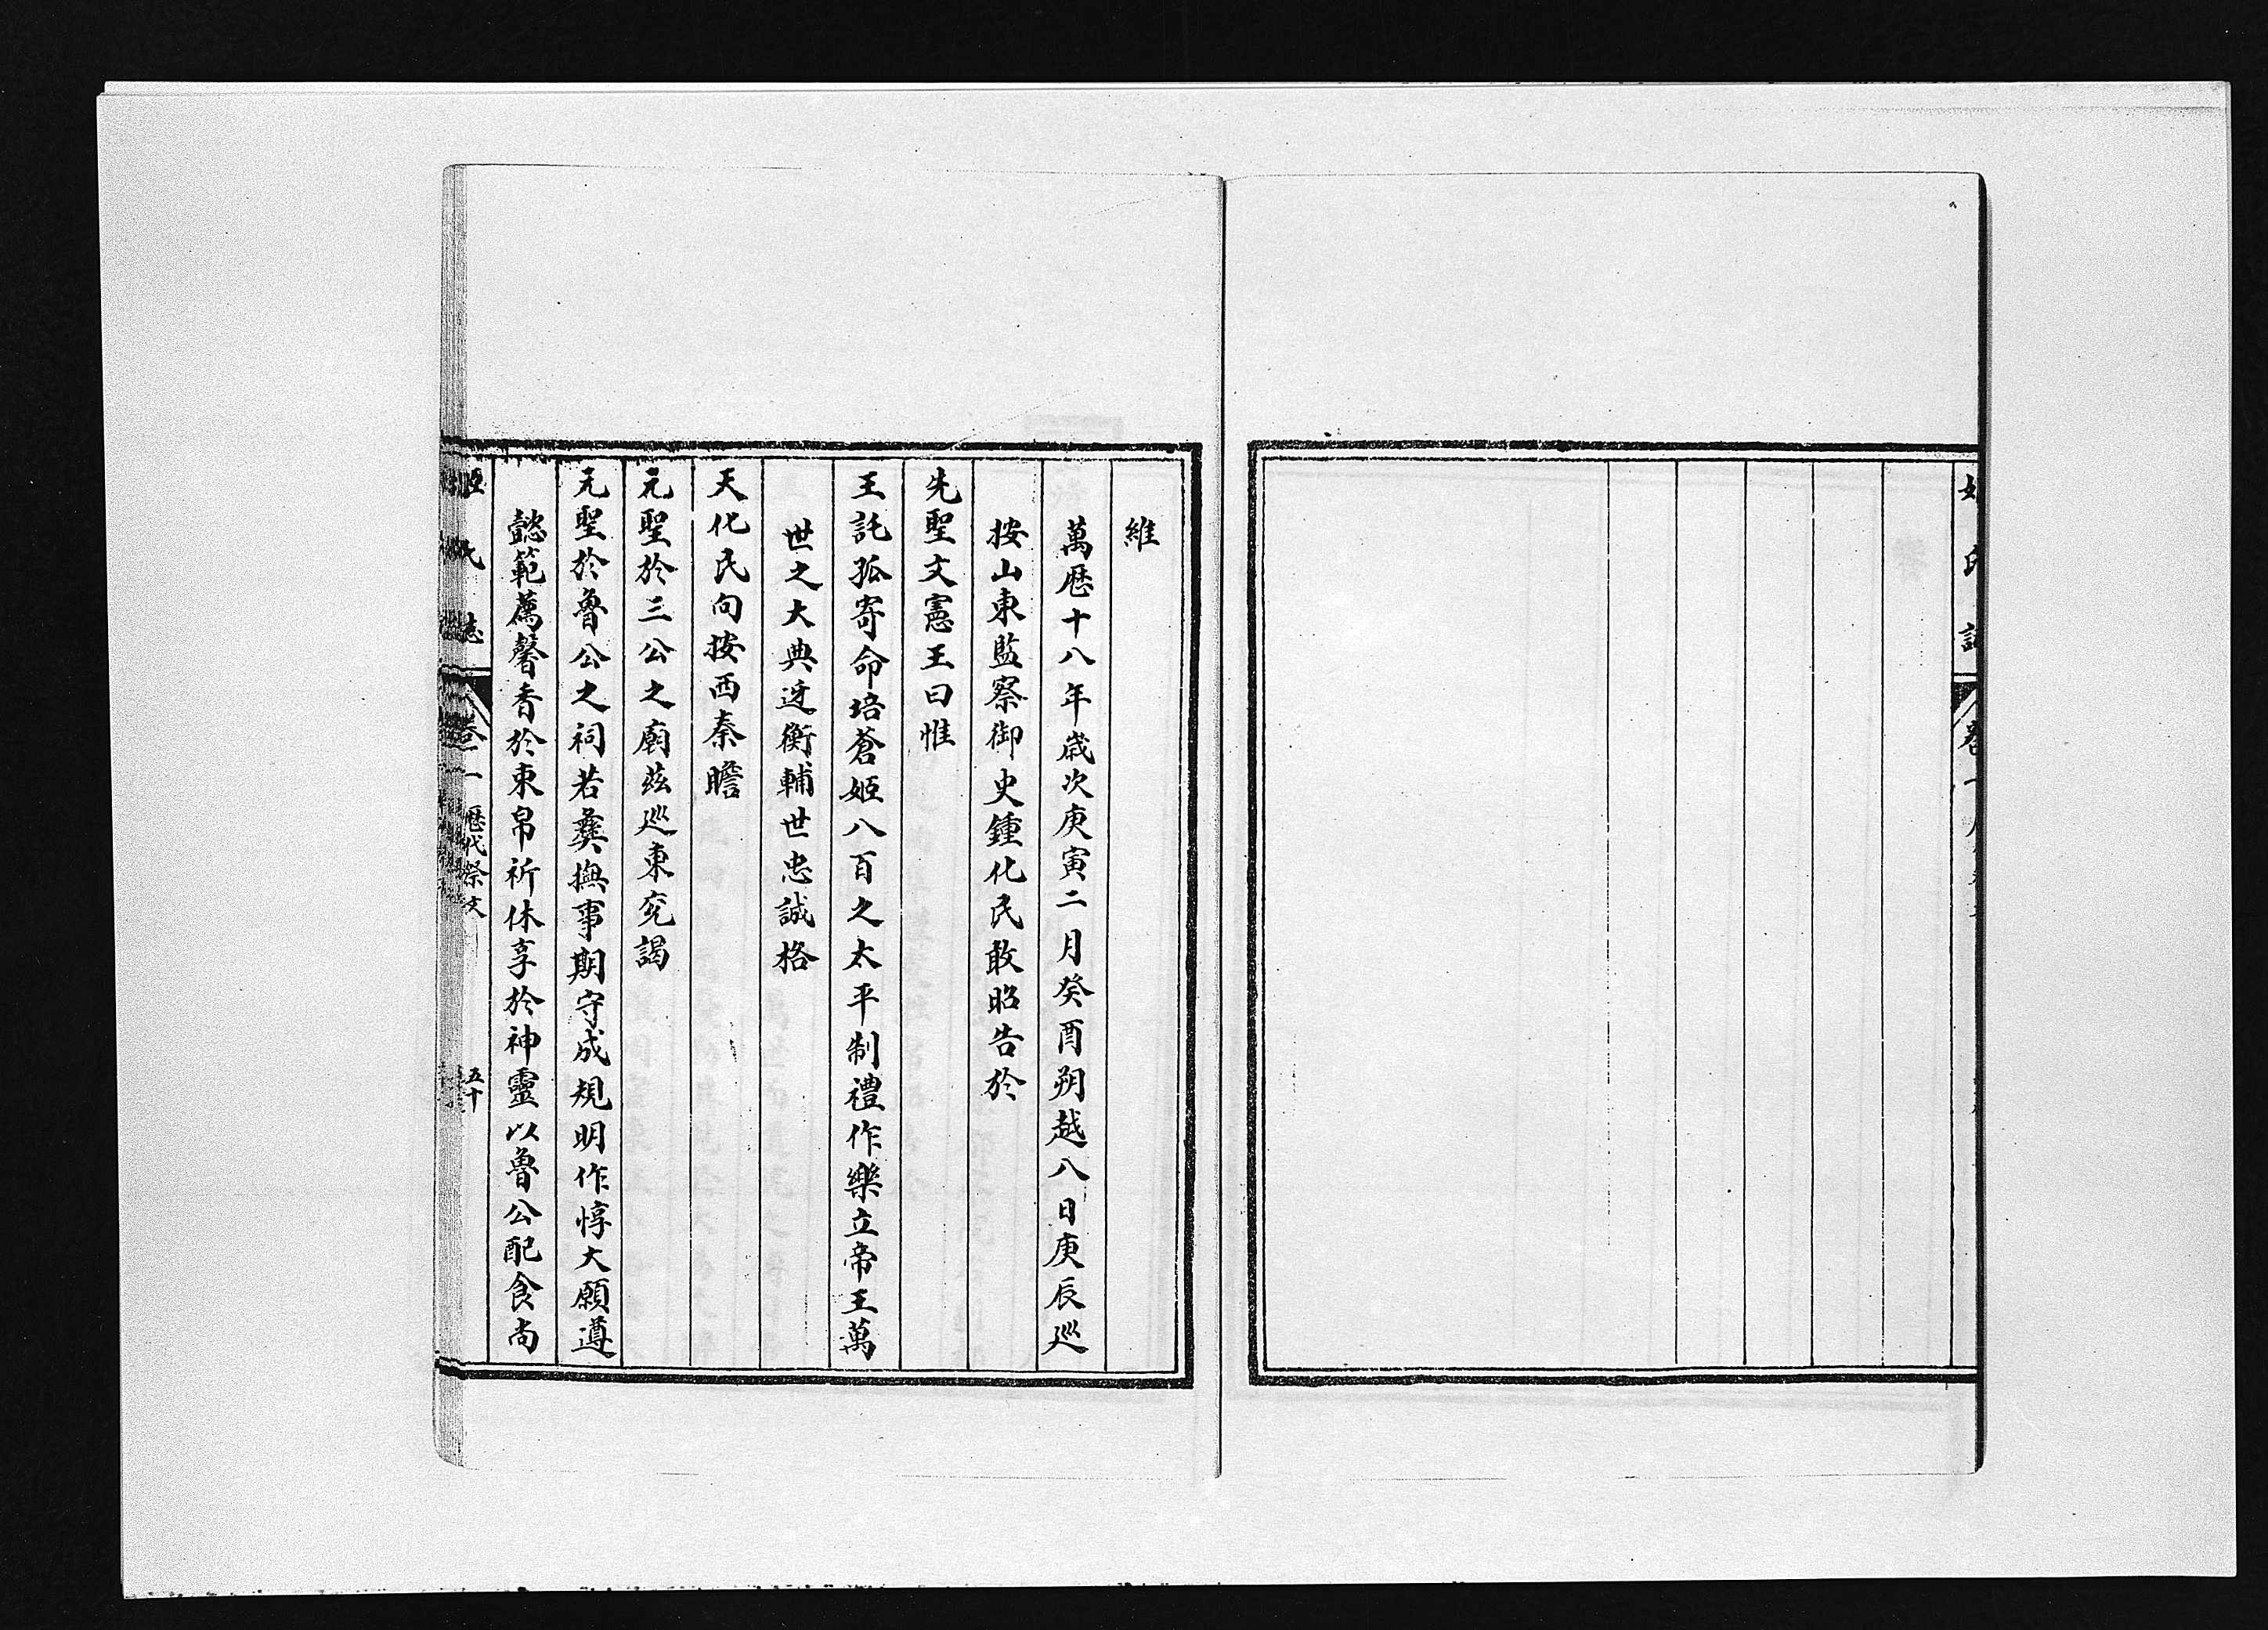 維
萬歷十八年歲次庚寅二月癸酉朔越八日庚辰巡
按山東監察御史鍾化民敢昭告於
先聖文憲王曰惟
王託孤寄命培蒼姬八百之太平制禮作樂立帝王萬
世之大典迓衡輔世忠誠格
天化民向按西秦瞻
元聖於三公之廟茲巡東兖謁
元聖於魯公之祠若彝撫事期守成規明作惇大願遵
懿範薦馨香於束帛祈休享於神靈以魯公配食尚
姬氏志 卷一 歷代祭文 五十